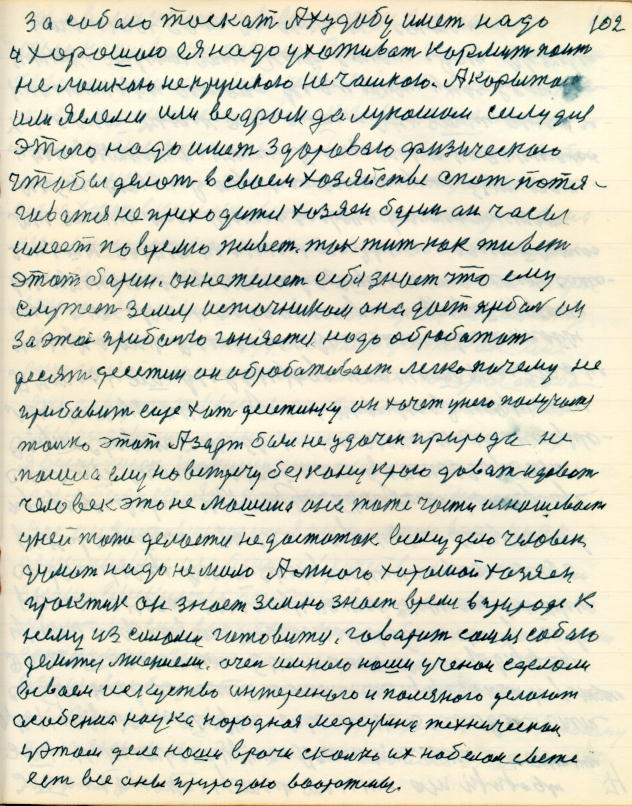 за собою тоскат А худобу имет надо 102
и хорошою ея надо ухоживат кормит поит
не лошкаю не крушкою не чашкою. А корытом
или яслеми или ведром да лукошком силу для
этого надо имет здоровою физическаю
чтобы делат в своем хозяйстве спат потя-
гиватся не приходится хозяен барин он часы
имеет по время живет. так жит как живет
этот барин. он не жалеет себя знает что ему
служет земля источником она дает прибал он
за этой прибалю гоняется надо обработат
десят десетин он обработавает легко почему не
прибавит еще хот десетинку он хочет унего получится
толко этот Азарт был не удачен природа не
пошла ему на встречу без конца краю давать и давать
человек это не машина она тоже части изнашевает
уней тоже делается недостаток всему дело человек
думат надо не мало А много хороший хозяен
практик он знает землю знает время в природе к
нему из солами готовится. говорит самы собою
делится мнением. очен много наши ученои сделали
своем искуство интересного и полезного делают
особенно наука народная медецина техническая
уэтом деле наши врачи сколко их на белом свете
ест все оны природаю вооружены.